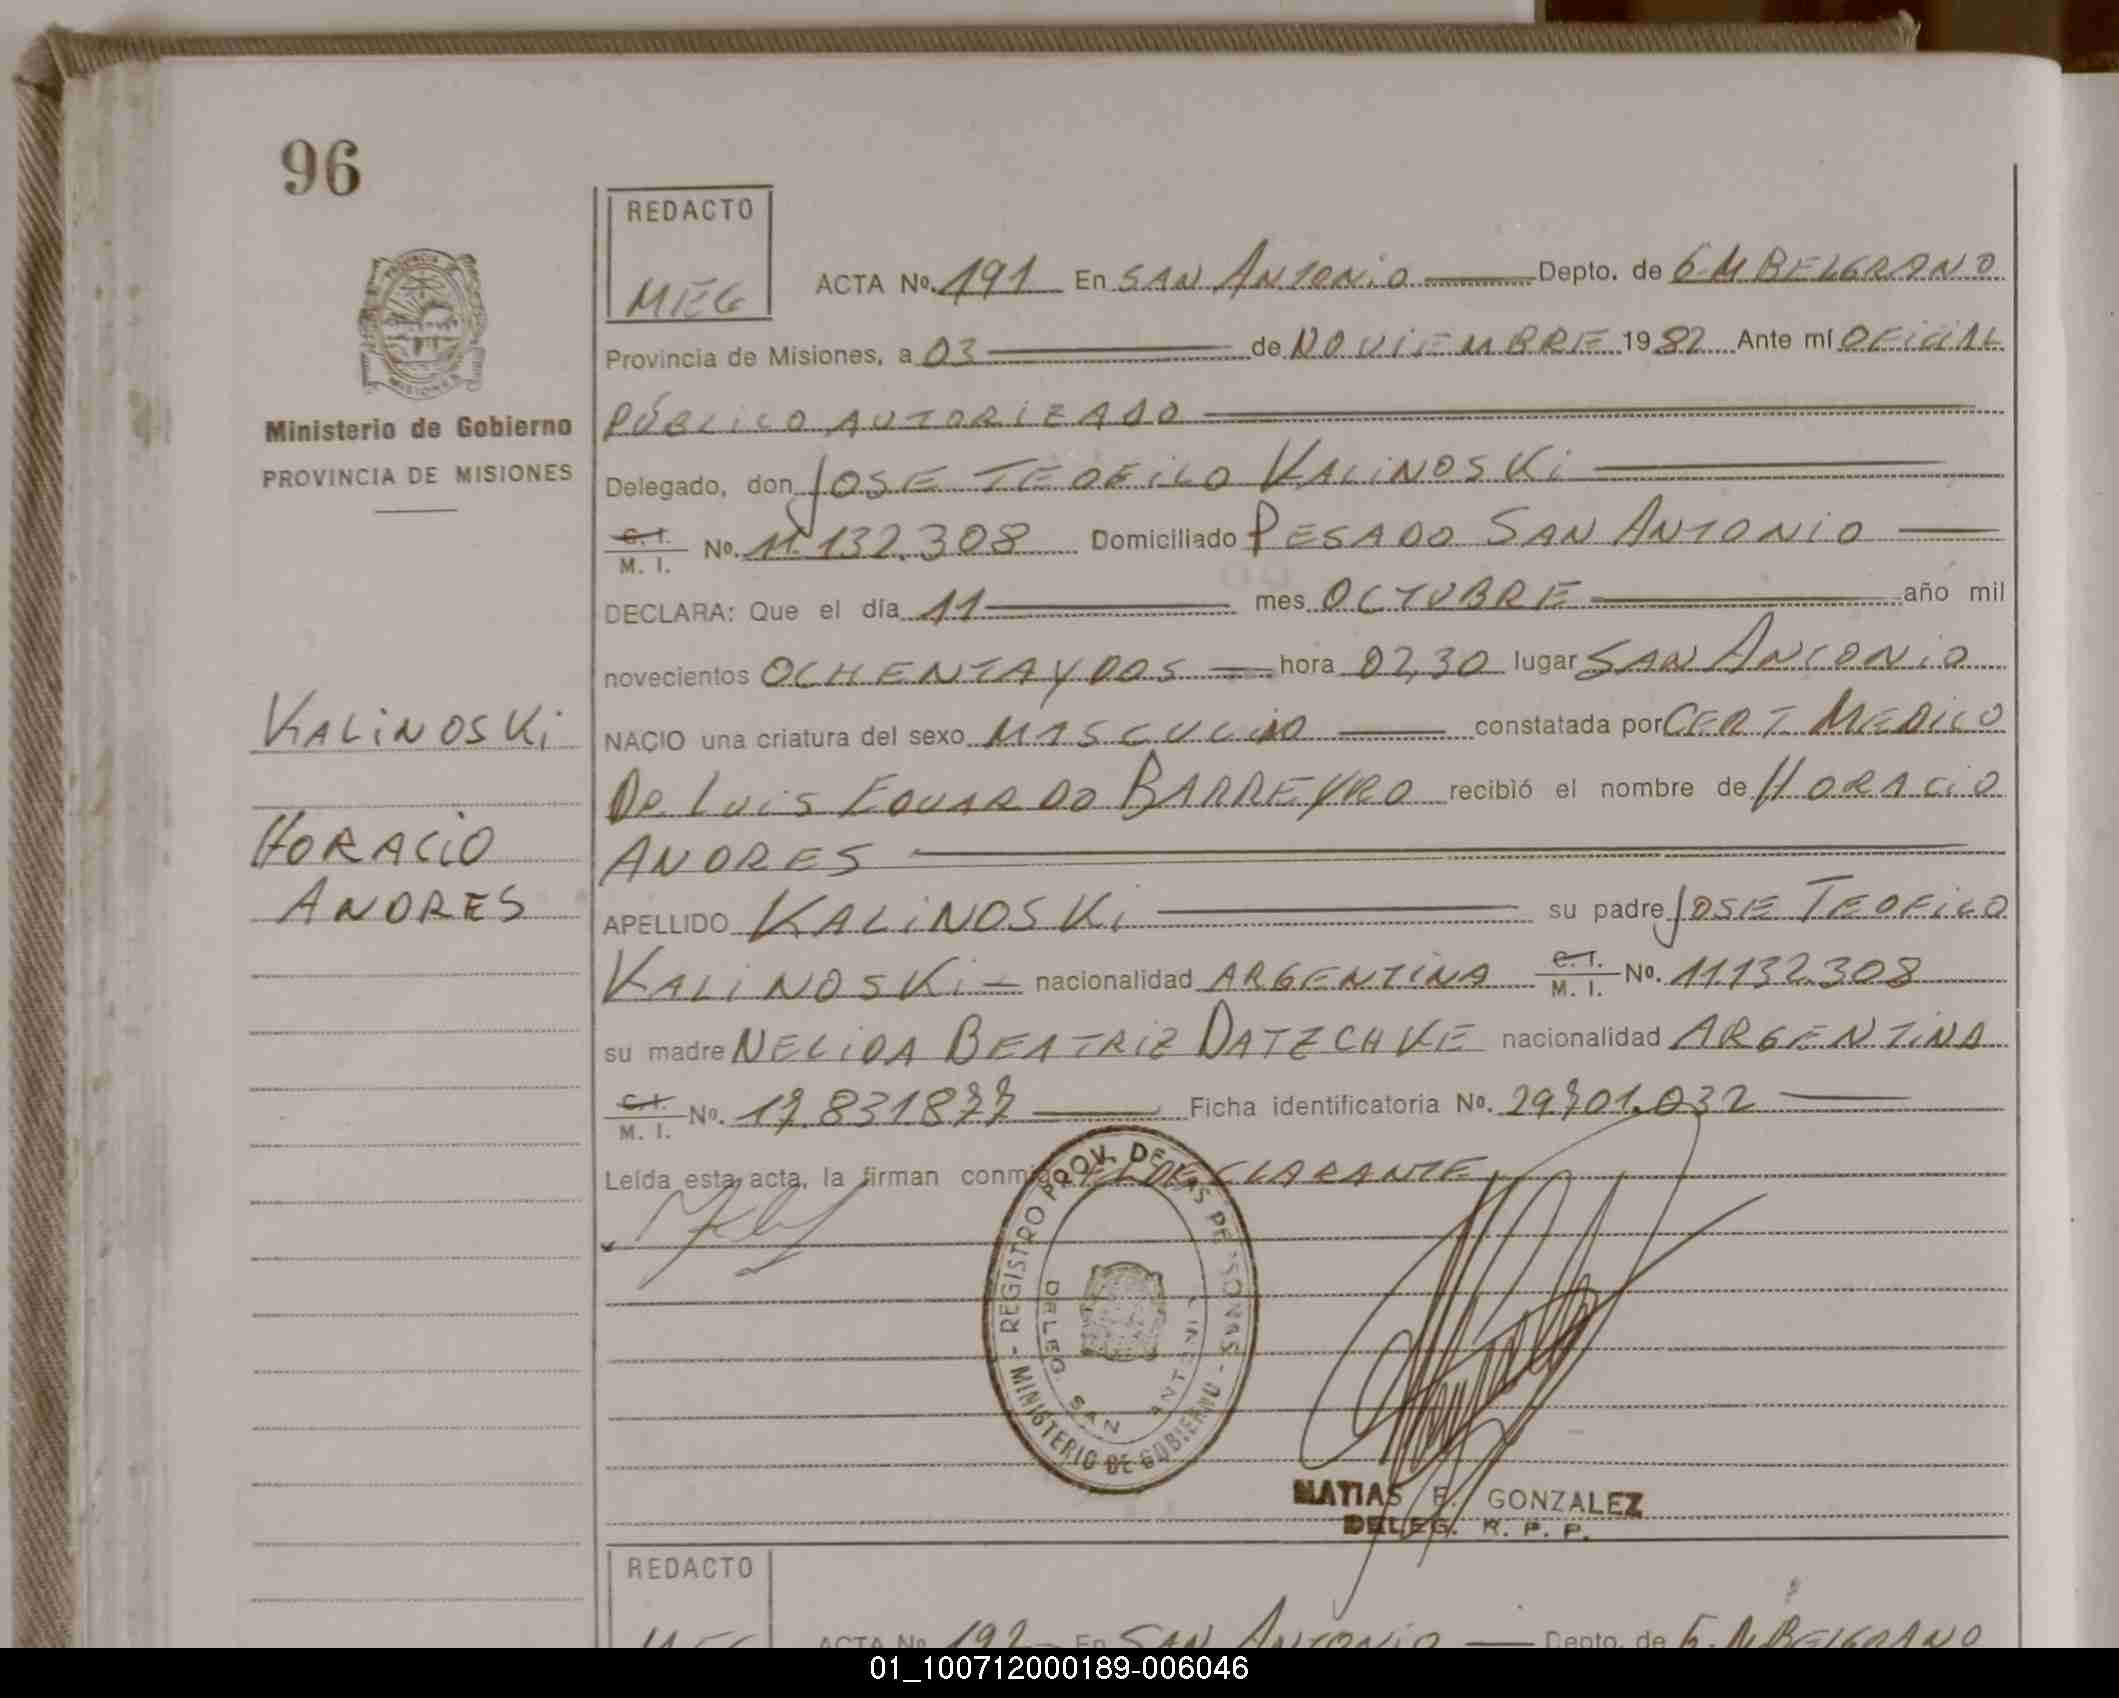 96
REDACTO
MEG
ACTA Nº. 191 En SAN ANTONIO Depto. de G. M BELGRANO
Provincia de Misiones, a 03 de NOVIEMBRE 1982 Ante mí OFICIAL
PÚBLICO AUTORIZADO
Ministerio de Gobierno
PROVINCIA DE MISIONES
Delegado, don JOSE TEOFILO KALINOSKI
C. I.
M. I. No. 11.132.308 Domiciliado PESADO SAN ANTONIO
DECLARA: Que el día 11 mes OCTUBRE año mil
novecientos OCHENTA Y DOS hora 02,30 lugar SAN ANTONIO
NACIO una criatura del sexo MASCULINO constatada por CERT MEDICO
DR LUIS EDUARDO BARREYRO recibió el nombre de HORACIO
ANDRES
KALINOSKI
HORACIO
ANDRES
APELLIDO KALINOSKI su padre JOSE TEOFILO
KALINOSKI nacionalidad ARGENTINA C. I.
M. I. No. 11.132.308
su madre NELIDA BEATRIZ DATZCHKE nacionalidad ARGENTINA
C. I.
M. I. No. 17.831877 Ficha identificatoria No. 29701.032
Leída esta acta, la firman conmigo EL DECLARANTE
- REGISTRO PROV. DE LAS PERSONAS -
MINISTERIO DE GOBIERNO
DELEG. SAN ANTONIO
MATIAS E. GONZALEZ
DELEG. R. P. P.
REDACTO
MEG
ACTA No 192 En SAN ANTONIO Depto. de G. M BELGRANO
01_100712000189-006046